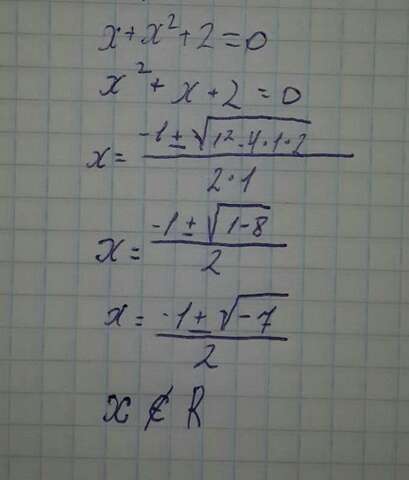 x+x²+2=0
x²+x+2=0
x = (-1±√(1²-4·1·2))/(2·1)
x = (-1±√(1-8))/2
x = (-1±√(-7))/2
x ∉ R